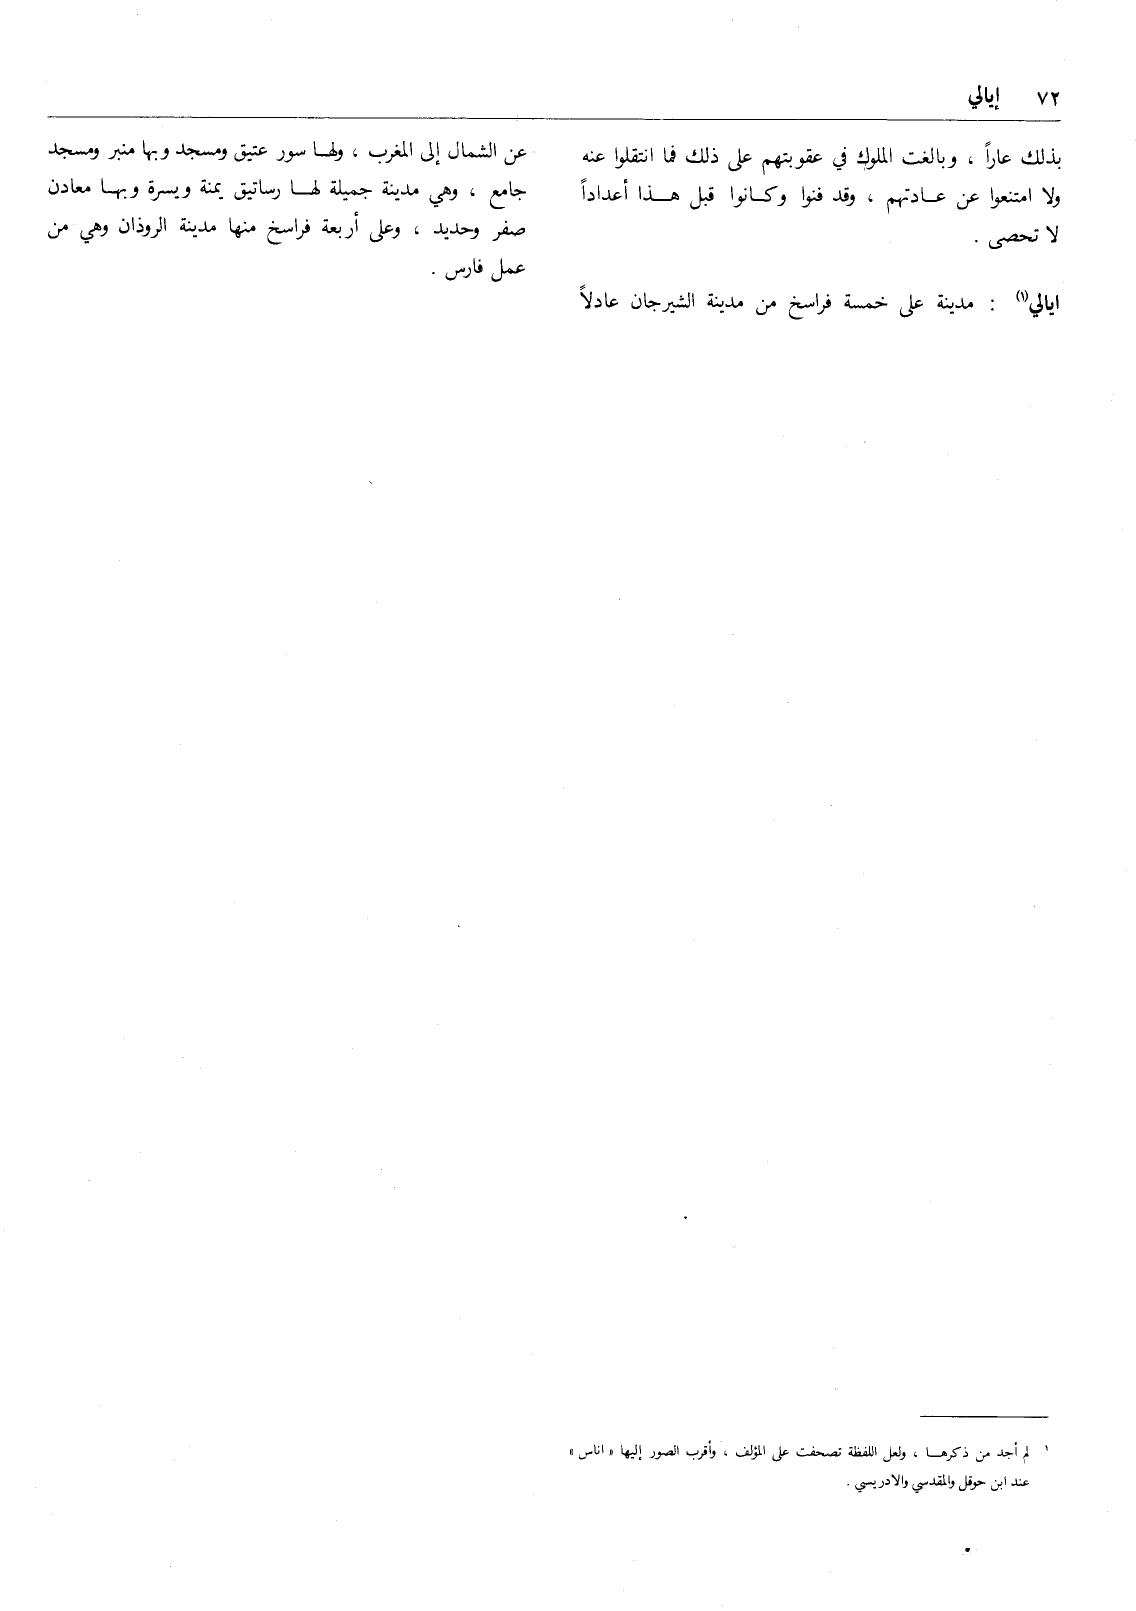 ٧٢ إيالي
بذلك عاراً ، وبالغت الملوك في عقوبتهم على ذلك فما انتقلوا عنه
ولا امتنعوا عن عـادتهم ، وقد فنوا وكـانوا قبل هـذا أعداداً
لا تحصى .
ايالي(١) : مدينة على خمسة فراسخ من مدينة الشيرجان عادلاً
عن الشمال إلى المغرب ، ولهـا سور عتيق ومسجد وبها منبر ومسجد
جامع ، وهي مدينة جميلة لهـا رساتيق يمنة ويسرة وبهـا معادن
صفر وحديد ، وعلى أربعة فراسخ منها مدينة الروذان وهي من
عمل فارس .
١ لم أجد من ذكرهـا ، ولعل اللفظة تصحفت على المؤلف ، وأقرب الصور إليها « اناس »
عند ابن حوقل والمقدسي والادريسي .